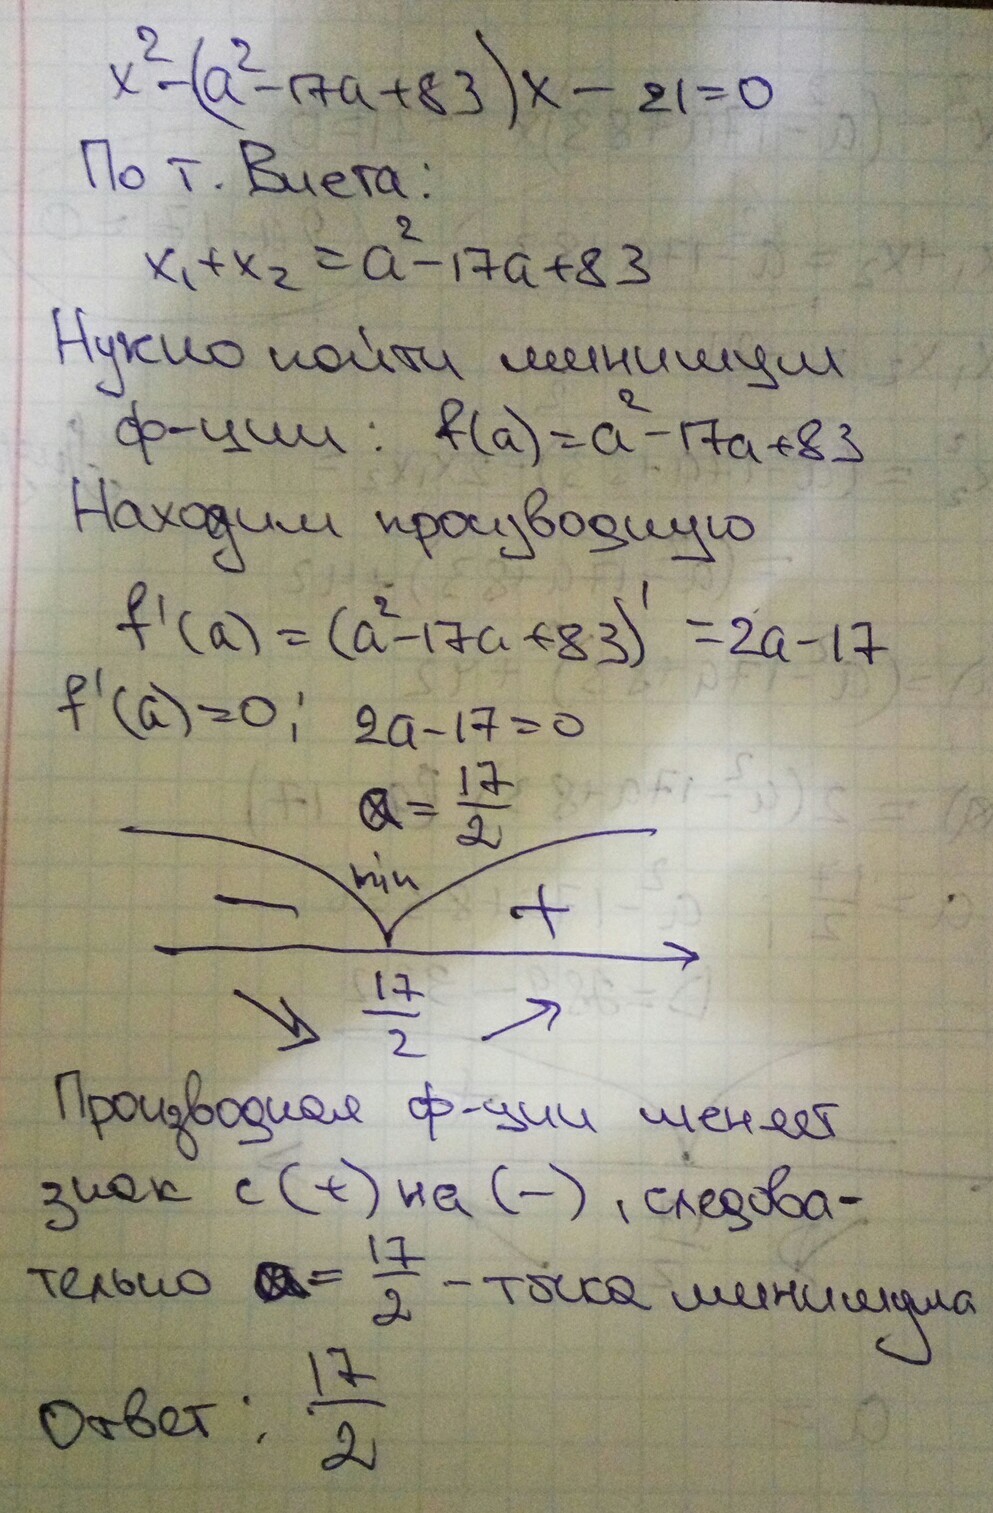 x² - (a² - 17a + 83)x - 21 = 0
По т. Виета:
x₁ + x₂ = a² - 17a + 83
Нужно найти минимум
ф-ции: f(a) = a² - 17a + 83
Находим производную
f'(a) = (a² - 17a + 83)' = 2a - 17
f'(a) = 0; 2a - 17 = 0
a = 17/2
min
− +
17/2
Производная ф-ции меняет
знак с (+) на (−), следова-
тельно a = 17/2 - точка минимума
Ответ: 17/2